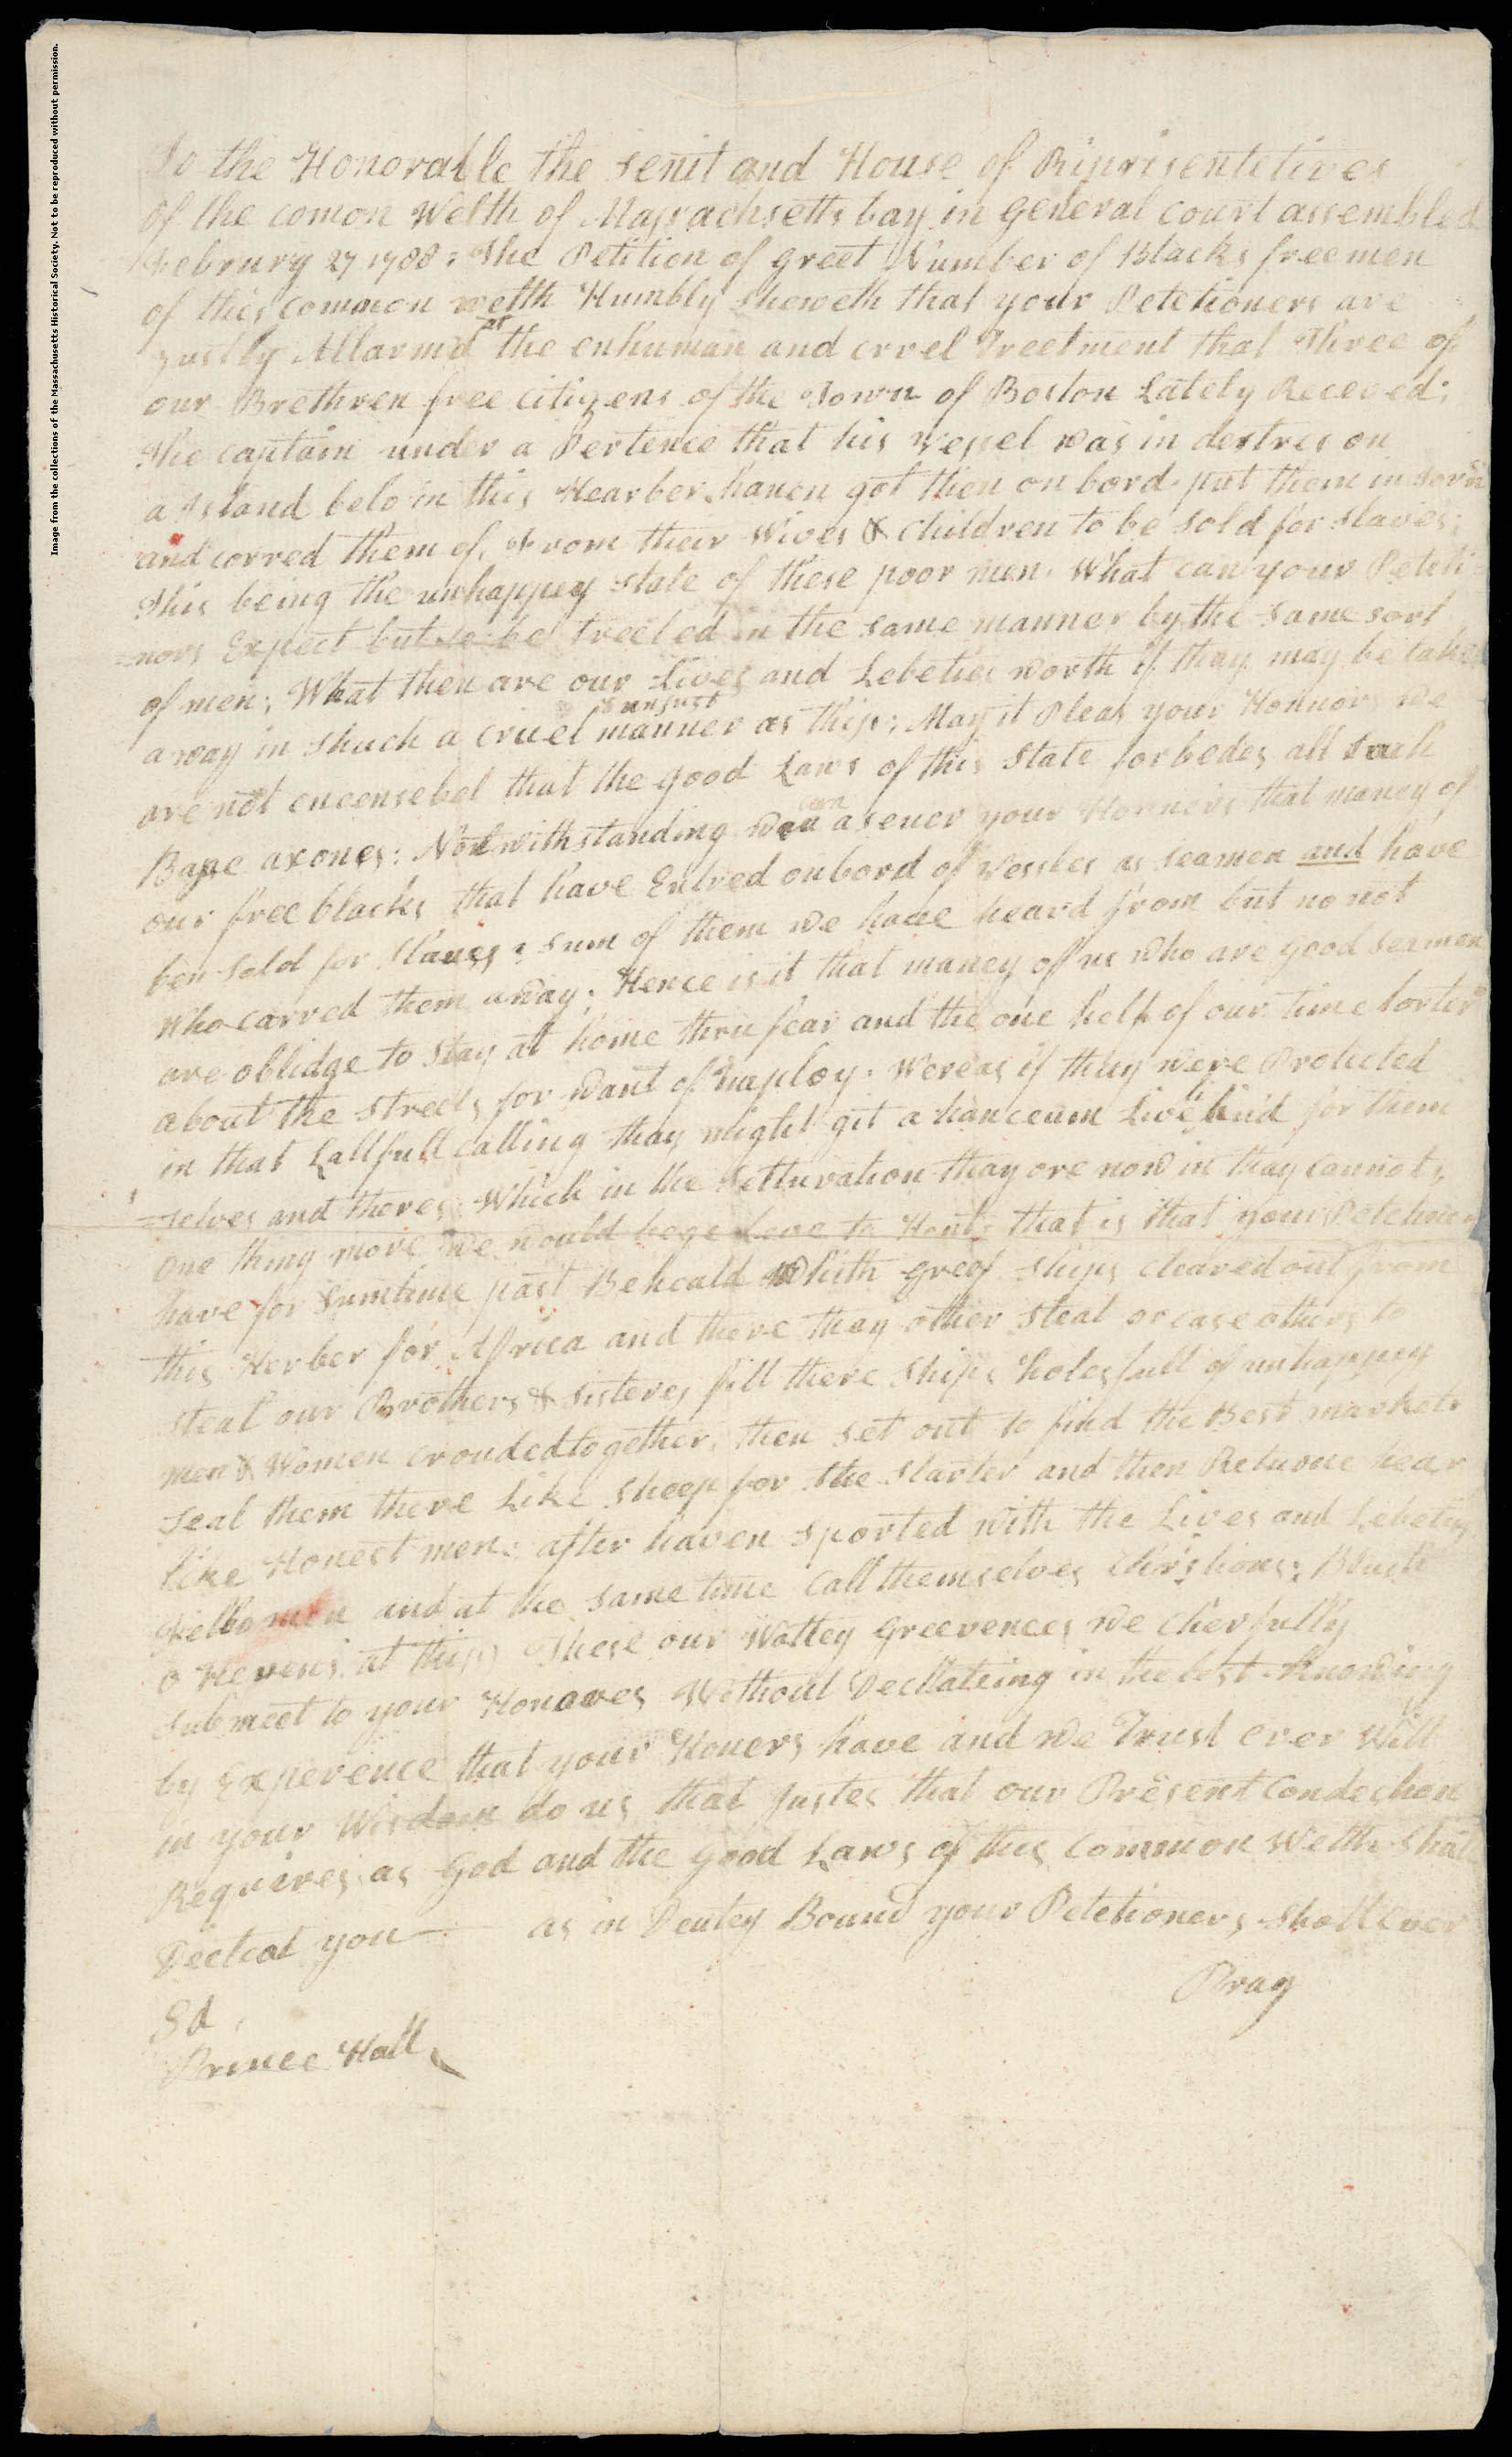 Image from the collections of the Massachusetts Historical Society. Not to be reproduced without permission.
To the Honorable the senit and House of Riprisentetives
of the comon Welth of Massachsetts bay in general court assembled
Februrey 27 1788: The Petition of greet Number of Blacks freemen
of this common welth Humbly sheweth that your Petetioners are
justly Allarmd at the enhuman and crvel Treetment that Three of
our Brethren free citizens of the Town of Boston Lately Receved;
The captain under a Pertence that his vessel was in destres on
a Island belo in this Hearber haven got then on bord put them in Iorns
and corred them of, From their Wives & Children to be sold for slaves;
This being the unhappey state of these poor men. What can your Peteti
=nors Expect but to be treeted in the same manner by the same sort
of men; What then are our Lives and Lebeties worth if thay may be taken
a way in shuch a cruel & unjust manner as this; May it Pleas your Honnors we
are not encensebel that the good Laws of this State forbedes all such
Base axones: Notwithstanding we can aseuer your Honners that maney of
our free blacks that have Entred onbord of vessles as seamen and have
ben sold for Slaves & sum of them we have heard from but no not
who carred them away; Hence is it that maney of us who are good seamen
are oblidge to stay at home thru fear and the one help of our time lorter
about the streets for want of imploy. Wereas if they were Protected
in that Lallfull calling thay might git a hanceum livehud for them
=selves and theres: Which in the setturation thay are now in thay cannot,
one thing more we would bege leve to Hont, that is that your Petetiners
have for sumtime past Beheald whith greef ships cleared out from
this Herber for Africa and there they other steal or case others to
steal our Brothers & sisters fill there ships holes full of unhappey
men & Women crouded together, then set out to find the Best markets
seal them there Like sheep for the slarter and then Returne hear
like Honest men; after haven sported with the Lives and Lebeties
fello men and at the same time call themselves Chirstions: Blush
o Hevens at this; These our Wattey greevences we cherfully
submeet to your Honores Without Decttateing in the lest knowing
by Experence that your Honers have and we Trust ever Will
in your Wisdom do us that Justes that our Present condechon
Requires as God and the good Laws of this Common Welth shall
Dectat you— as in Deutey Bound your Petetioners shall ever
Pray
Sd
Prince Hall